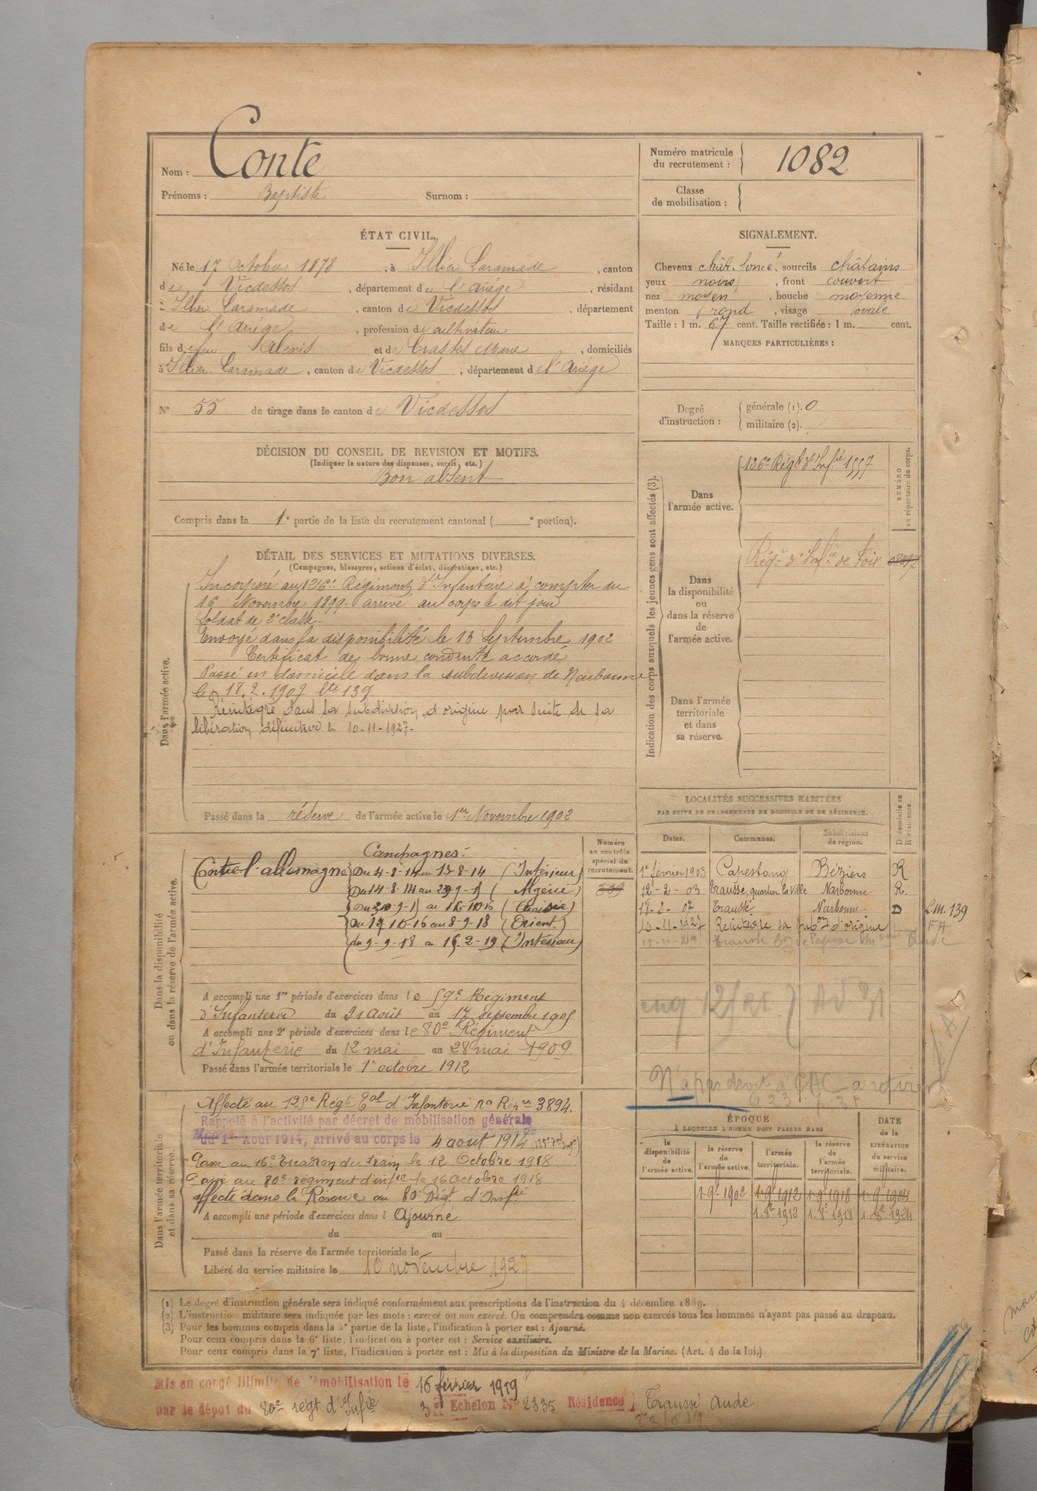 Nom : Conte
Prénoms : Baptiste Surnom :
Numéro matricule du recrutement : 1082
Classe de mobilisation :
ÉTAT CIVIL.
Né le 17 Octobre 1878, à Illier Laramade, canton
de Vicdessos, département de l'Ariège, résidant
à Illier Laramade, canton de Vicdessos, département
de l'Ariège, profession de cultivateur
fils de feu Alexis et de Marie, domiciliés
à Illier Laramade, canton de Vicdessos, département de l'Ariège
N° 55 de tirage dans le canton de Vicdessos
SIGNALEMENT.
Cheveux chât. foncé, sourcils châtains
yeux noirs, front couvert
nez moyen, bouche moyenne
menton rond, visage ovale
Taille : 1 m. 67 cent. Taille rectifiée : 1 m. cent.
MARQUES PARTICULIÈRES :
Degré d'instruction : générale (1). 0
militaire (2).
DÉCISION DU CONSEIL DE REVISION ET MOTIFS.
(Indiquer la nature des dispenses, sursis, etc.)
Bon absent
Compris dans la 1e partie de la liste du recrutement cantonal ( e portion).
DÉTAIL DES SERVICES ET MUTATIONS DIVERSES.
(Campagnes, blessures, actions d'éclat, décorations, etc.)
Dans l'armée active.
Incorporé au 126e Régiment d'Infanterie à compter du
16 Novembre 1899. arrivé au corps le dit jour
Soldat de 2e classe.
Envoyé dans la disponibilité le 13 Septembre 1902
Certificat de bonne conduite accordé
Passé en domicile dans la subdivision de Narbonne
le 18.2.1907 139
Réintégré dans sa subdivision d'origine par suite de sa
libération définitive le 10-11-1927.
Passé dans la réserve de l'armée active le 1er Novembre 1902
Indication des corps auxquels les jeunes gens sont affectés (3).
NUMÉRO au répertoire du corps.
Dans l'armée active. 126e Régt d'Infie
Dans la disponibilité ou dans la réserve de l'armée active. Régt d'Infie de Foix
Dans l'armée territoriale et dans sa réserve.
LOCALITÉS SUCCESSIVES HABITÉES
PAR SUITE DE CHANGEMENTS DE DOMICILE OU DE RÉSIDENCE.
Dates. Communes. Subdivisions de région. D domicile ou R résidence.
1er février 1903 Capestang Béziers R
12-2-03 Trausse, Narbonne R.
18-2-07 Trausse Narbonne D L.M. 139
10-11-1927 Réintègre sa d'origine
Dans la disponibilité ou dans la réserve de l'armée active.
Numéro au contrôle spécial du recrutement.
Campagnes :
Contre l'allemagne Du 4-8-14 au 13-8-14 (Intérieur)
Du 14-8-14 au (Algérie)
(Tunisie)
au 8-9-18 (Orient)
du 9-9-18 (Intérieur)
A accompli une 1re période d'exercices dans le 59e Régiment
d'Infanterie du 21 août au 17 septembre 1905
A accompli une 2e période d'exercices dans le 80e Régiment
d'Infanterie du 12 mai au 28 mai 1909.
Passé dans l'armée territoriale le 1er octobre 1912
Dans l'armée territoriale et dans sa réserve.
Affecté au Régt d'Infanterie 3894.
Rappelé à l'activité par décret de mobilisation générale
du 1er Août 1914, arrivé au corps le 4 août 1914
Passé au 16e Escadron du train le 12 Octobre 1918
Passé au 80e régiment d'infie le 16 octobre 1918
affecté dans la Réserve au 80e Régt d'Infie
A accompli une période d'exercices dans l Ajourné
du au
Passé dans la réserve de l'armée territoriale le
Libéré du service militaire le 10 novembre 1927
ÉPOQUE
À LAQUELLE L'HOMME DOIT PASSER DANS
la disponibilité de l'armée active. la réserve de l'armée active. l'armée territoriale. la réserve de l'armée territoriale.
DATE de la LIBÉRATION du service militaire.
1-9-1902 1-9-1912 1-9-1918 1-9-1924
(1) Le degré d'instruction générale sera indiqué conformément aux prescriptions de l'instruction du 4 décembre 1889.
(2) L'instruction militaire sera indiquée par les mots : exercé ou non exercé. On comprendra comme non exercés tous les hommes n'ayant pas passé au drapeau.
(3) Pour les hommes compris dans la 4e partie de la liste, l'indication à porter est : Ajourné.
Pour ceux compris dans la 6e liste, l'indication à porter est : Service auxiliaire.
Pour ceux compris dans la 7e liste, l'indication à porter est : Mis à la disposition du Ministre de la Marine. (Art. 4 de la loi.)
Mis en congé illimité de démobilisation le 16 février 1919
par le dépôt du 80e régt d'Infie 3e Echelon N° 2335 Résidence Trausse Aude